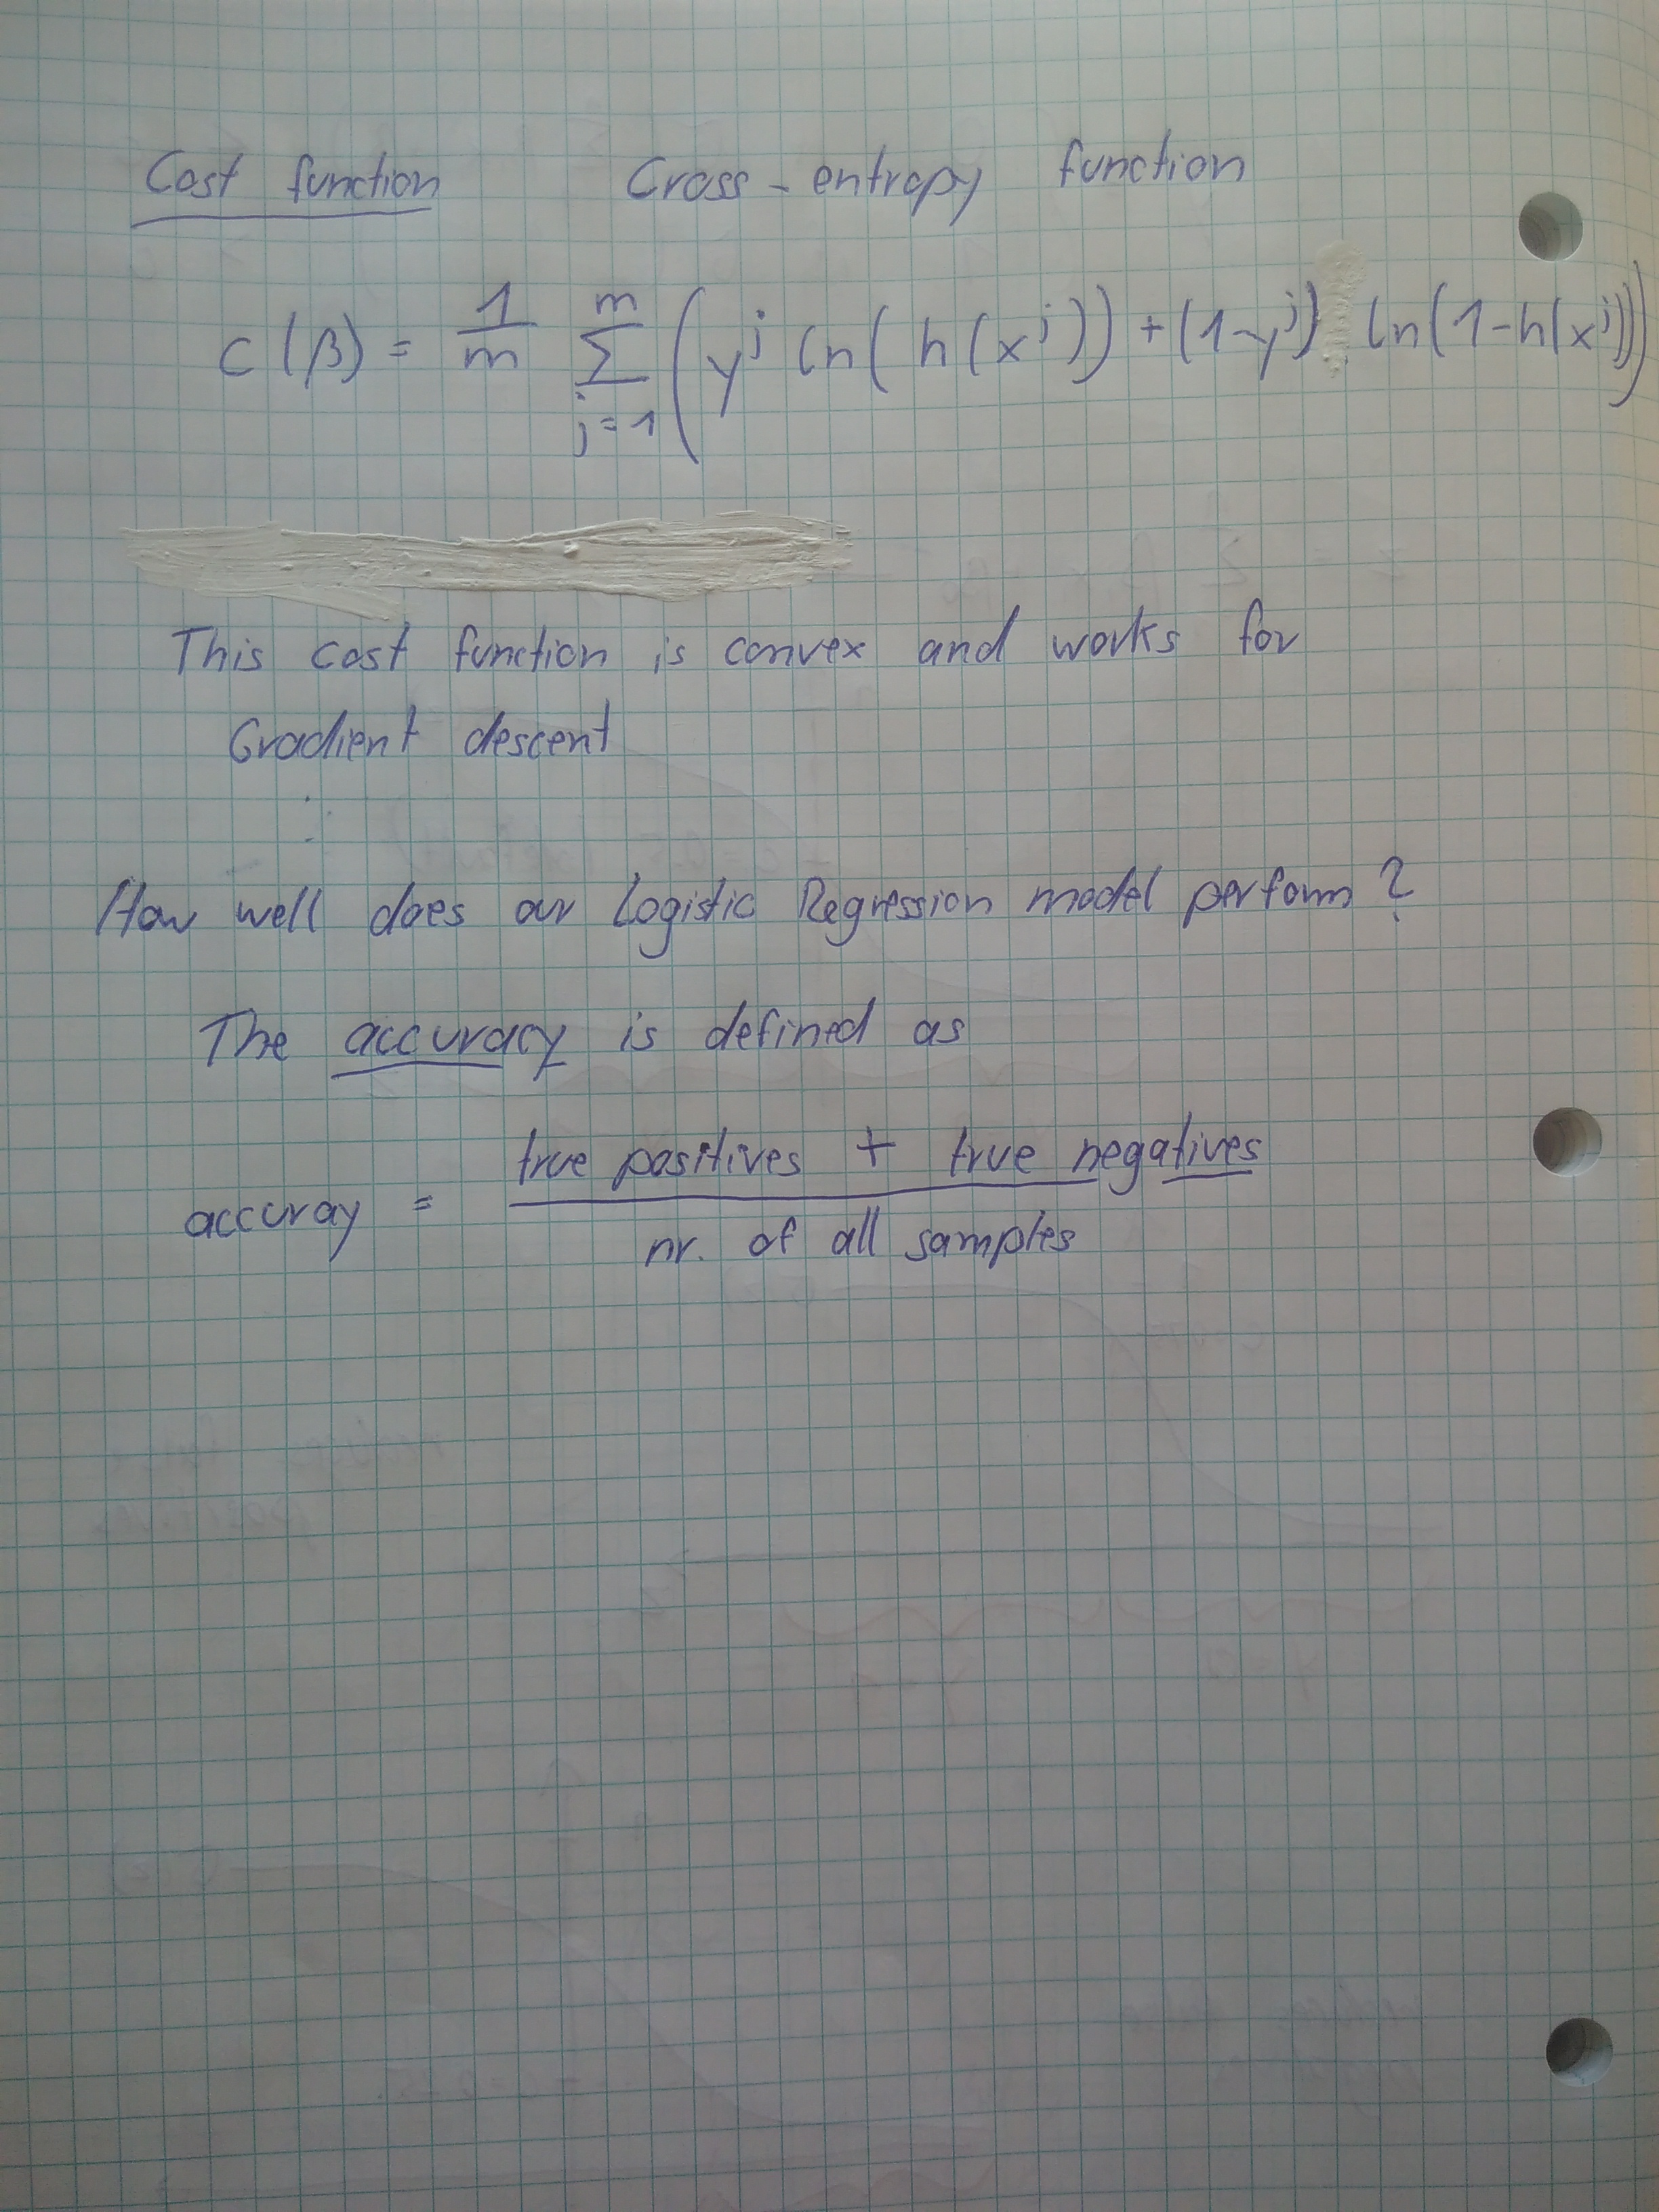 Cost function Cross-entropy function
C(β) = 1/m ∑_{j=1}^{m} (y^j ln(h(x^j)) + (1-y^j) ln(1-h(x^j)))
This cost function is convex and works for
Gradient descent
How well does our Logistic Regression model perform?
The accuracy is defined as
accuray = true positives + true negatives / nr. of all samples